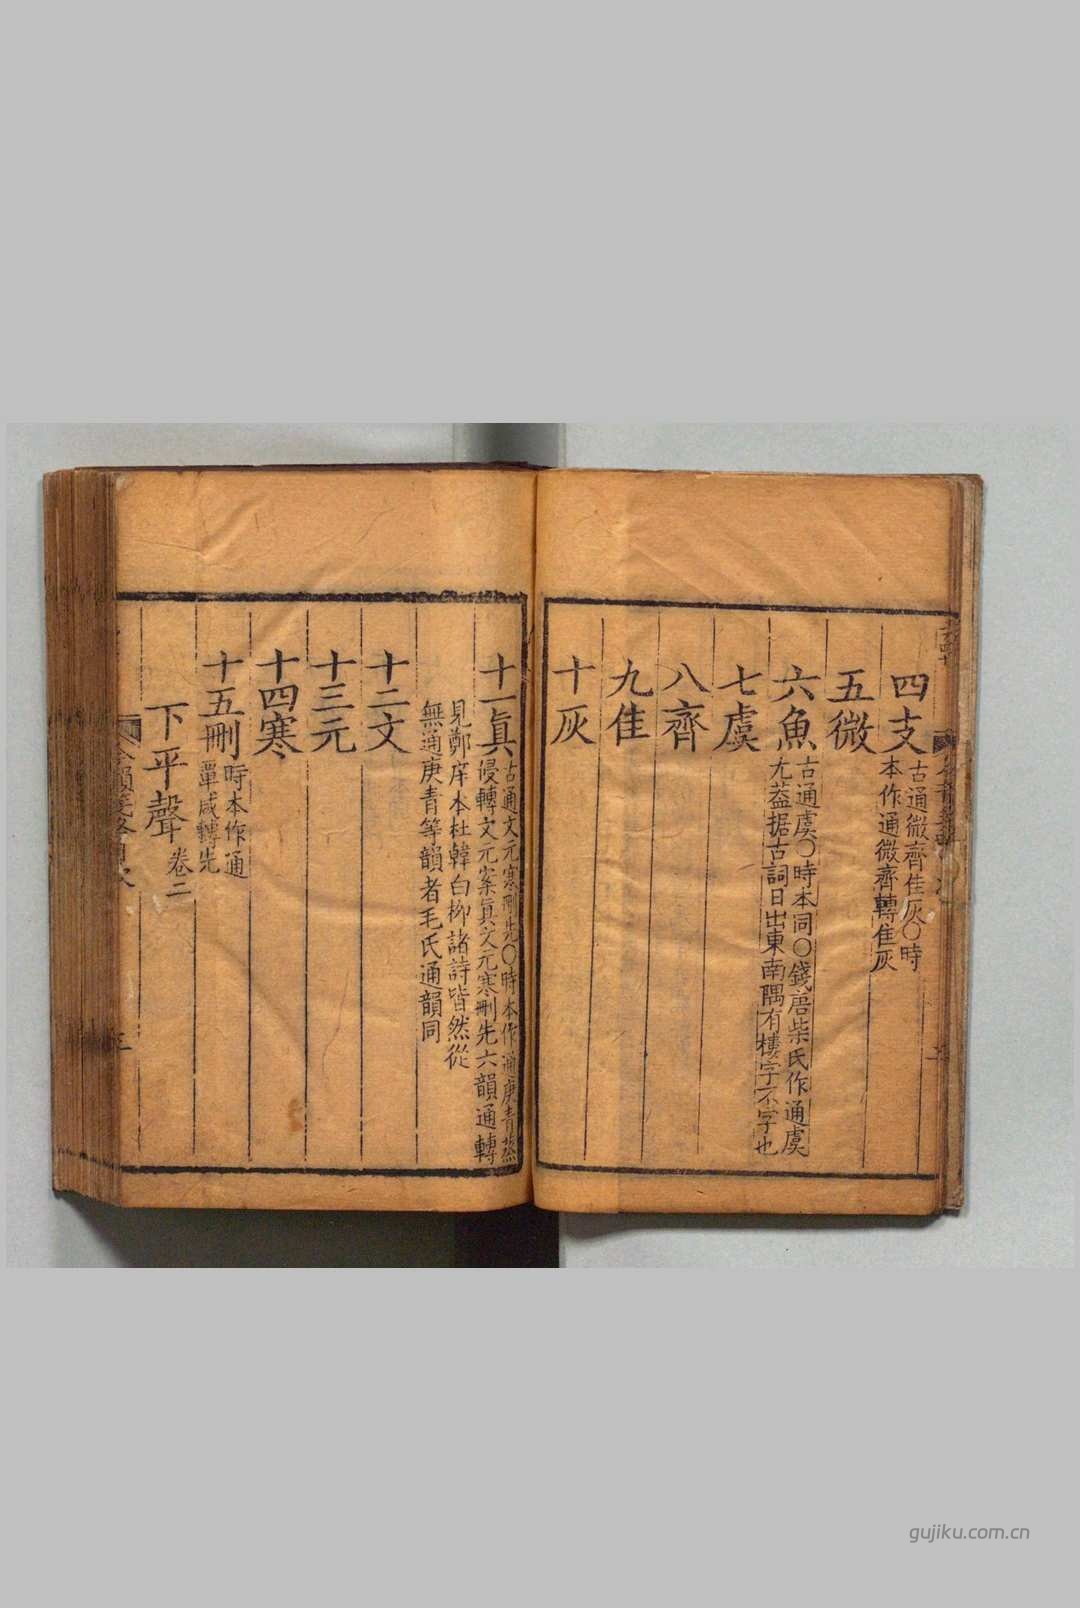 四支 古通微齊佳灰〇時
本作通微齊轉隹灰
五微
六魚 古通虞〇時本同〇錢唐柴氏作通虞
尤葢据古詞日出東南隅有樓字不字也
七虞
八齊
九佳
十灰
十一眞 古通文元寒刪先〇時本作通庚青蒸
侵轉文元案眞文元寒刪先六韻通轉
見鄭庠本杜韓白柳諸詩皆然從
無通庚青等韻者毛氏通韻同
十二文
十三元
十四寒
十五刪 時本作通
覃咸轉先
下平聲 卷二
三
gujiku.com.cn